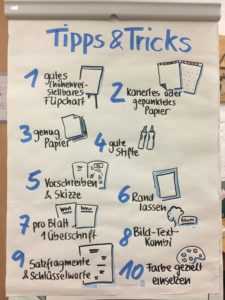 Tipps & Tricks
1 gutes
höhenver-
stellbares
Flipchart
2 kariertes oder
gepunktetes
Papier
3 genug
Papier
4 gute
Stifte
5 Vorschreiben
& Skizze
6 Rand
lassen
7 pro Blatt
1 Überschrift
8 Bild-Text-
Kombi
9 Satzfragmente
& Schlüsselworte
10 Farbe gezielt
einsetzen